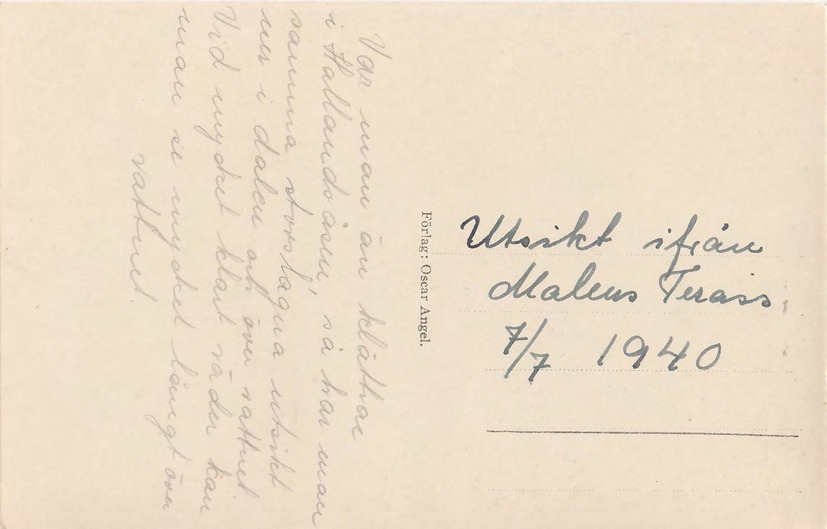 Var man än klättrar
i Hallandsåsen, så har man
samma storslagna utsikt
ner i dalen och över vattnet.
Vid mycket klart väder kan
man se mycket långt över
vattnet.
Förlag: Oscar Angel.
Utsikt ifrån
Malens Terass
7/7 1940